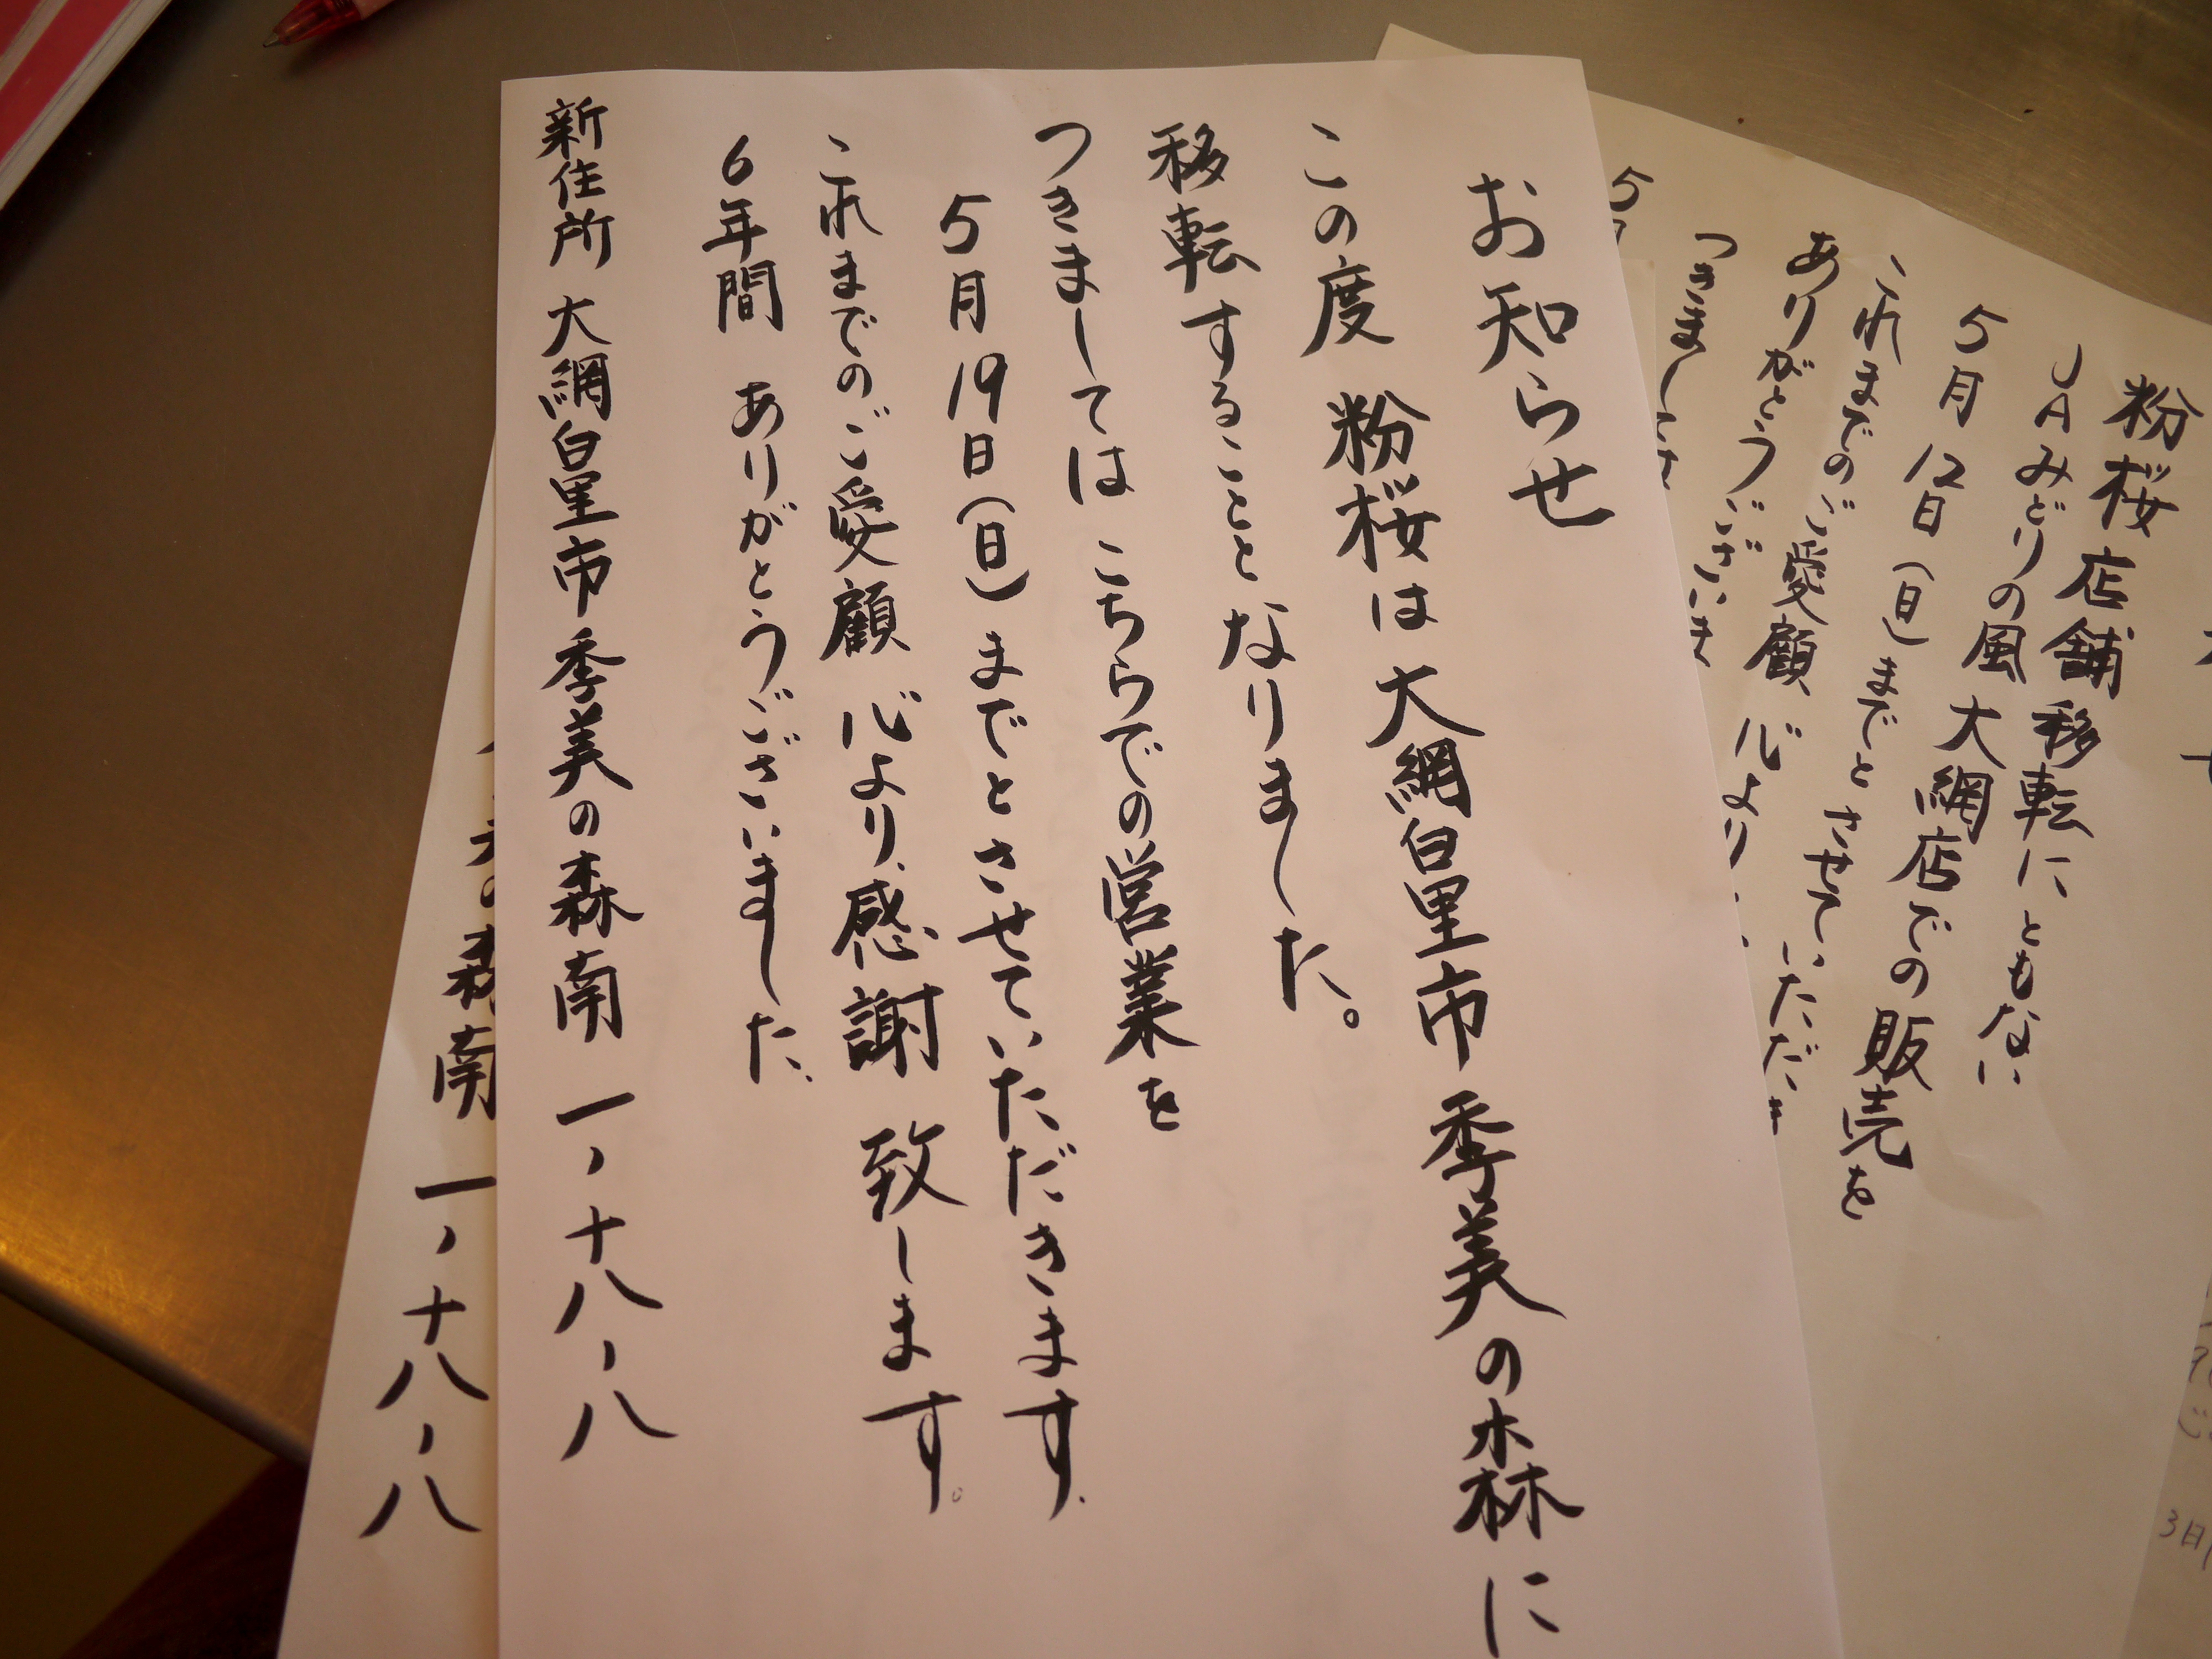 お知らせ
この度 粉桜は 大網白里市 季美の森に
移転することと なりました。
つきましては こちらでの営業を
5月19日(日)までとさせていただきます.
これまでのご愛顧 心より感謝 致します。
6年間 ありがとうございました、
新住所 大網白里市 季美の森南 一、十八、八
粉桜店舗移転にともない
JAみどりの風 大網店での販売を
5月12日(日)までと させていただき
これまでのご愛顧 心より
ありがとうございま
つきましては
5
森南 一、十八、八
3日